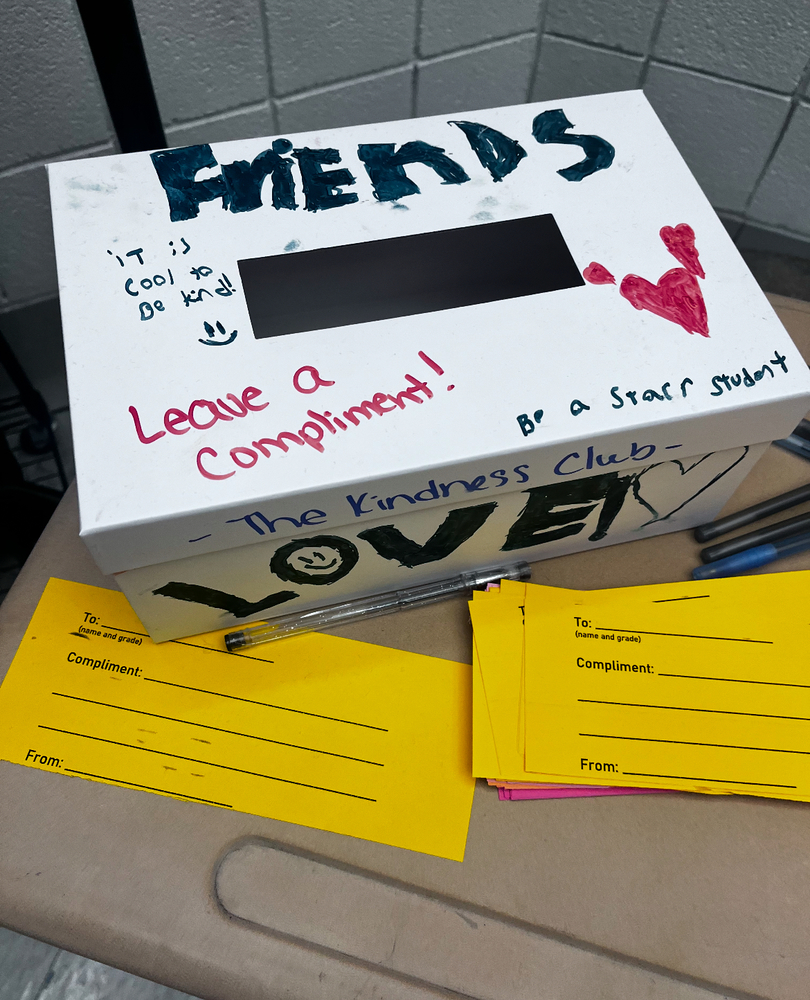 FriEnDS
iT is
Cool to
Be kind!
Leave a
Compliment!
Be a Starr Student
- The Kindness Club -
LOVE!
To:
(name and grade)
Compliment:
From:
To:
(name and grade)
Compliment:
From: